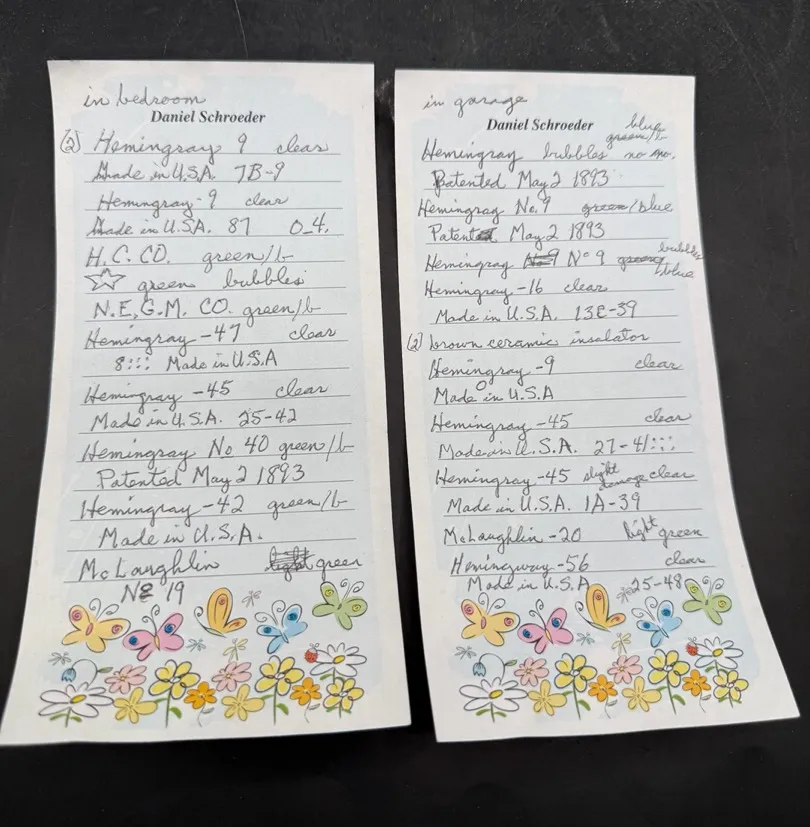 in bedroom
Daniel Schroeder
(2) Hemingray 9 clear
Made in U.S.A. 7B-9
Hemingray-9 clear
Made in U.S.A. 87 0_4.
H.C. CO. green/b
☆ green bubbles
N.E.G.M. CO. green/b
Hemingray -47 clear
8::: Made in U.S.A
Hemingray -45 clear
Made in U.S.A. 25-42
Hemingray No 40 green/b
Patented May 2 1893
Hemingray -42 green/b
Made in U.S.A.
McLaughlin light green
No 19
in garage
Daniel Schroeder
blue
green/b
Hemingray bubbles no no.
Patented May 2 1893
Hemingray No. 9 green/blue
Patented May 2 1893
bubbles
Hemingray N-9 Nº 9 green blue
Hemingray -16 clear
Made in U.S.A. 13E-39
(2) brown ceramic insalator
Hemingray -9 clear
Made in U.S.A
Hemingray -45 clear
Made in U.S.A. 27-41:::
Hemingray -45 slight damage clear
Made in U.S.A. 1A-39
McLaughlin -20 light green
Hemingway -56 clear
Made in U.S.A 25-48